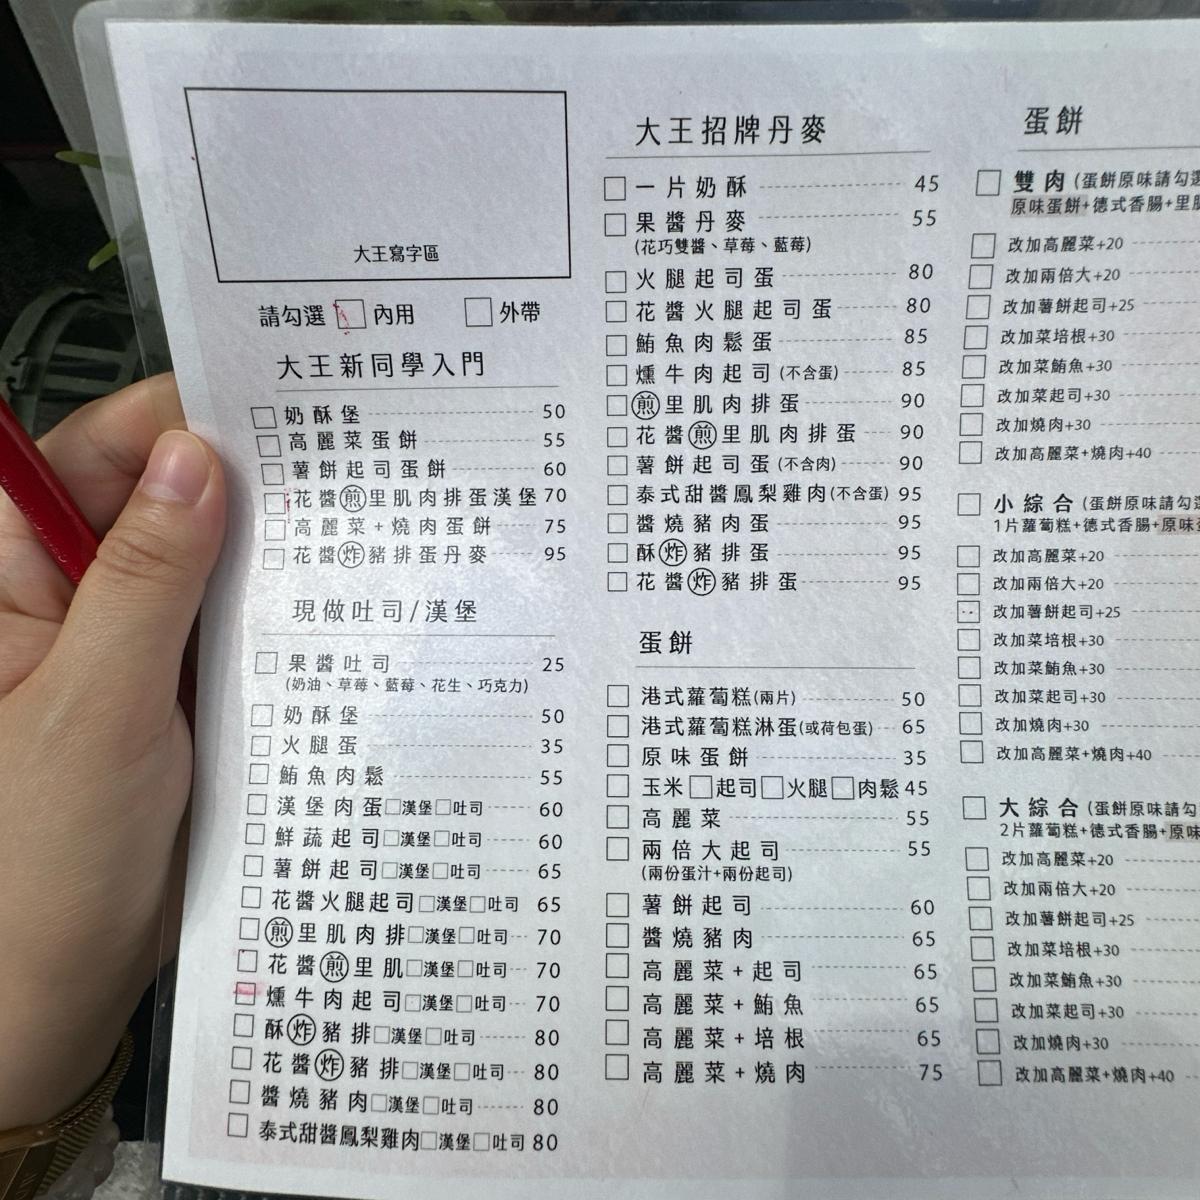 大王寫字區
請勾選 □ 內用 □ 外帶
大王新同學入門
□ 奶酥堡 50
□ 高麗菜蛋餅 55
□ 薯餅起司蛋餅 60
□ 花醬煎里肌肉排蛋漢堡 70
□ 高麗菜+燒肉蛋餅 75
□ 花醬炸豬排蛋丹麥 95
現做吐司/漢堡
□ 果醬吐司 25
(奶油、草莓、藍莓、花生、巧克力)
□ 奶酥堡 50
□ 火腿蛋 35
□ 鮪魚肉鬆 55
□ 漢堡肉蛋□漢堡□吐司 60
□ 鮮蔬起司□漢堡□吐司 60
□ 薯餅起司□漢堡□吐司 65
□ 花醬火腿起司□漢堡□吐司 65
□ 煎里肌肉排□漢堡□吐司 70
□ 花醬煎里肌□漢堡□吐司 70
□ 燻牛肉起司□漢堡□吐司 70
□ 酥炸豬排□漢堡□吐司 80
□ 花醬炸豬排□漢堡□吐司 80
□ 醬燒豬肉□漢堡□吐司 80
□ 泰式甜醬鳳梨雞肉□漢堡□吐司 80
大王招牌丹麥
□ 一片奶酥 45
□ 果醬丹麥 55
(花巧雙醬、草莓、藍莓)
□ 火腿起司蛋 80
□ 花醬火腿起司蛋 80
□ 鮪魚肉鬆蛋 85
□ 燻牛肉起司(不含蛋) 85
□ 煎里肌肉排蛋 90
□ 花醬煎里肌肉排蛋 90
□ 薯餅起司蛋(不含肉) 90
□ 泰式甜醬鳳梨雞肉(不含蛋) 95
□ 醬燒豬肉蛋 95
□ 酥炸豬排蛋 95
□ 花醬炸豬排蛋 95
蛋餅
□ 港式蘿蔔糕(兩片) 50
□ 港式蘿蔔糕淋蛋(或荷包蛋) 65
□ 原味蛋餅 35
□ 玉米□起司□火腿□肉鬆 45
□ 高麗菜 55
□ 兩倍大起司 55
(兩份蛋汁+兩份起司)
□ 薯餅起司 60
□ 醬燒豬肉 65
□ 高麗菜+起司 65
□ 高麗菜+鮪魚 65
□ 高麗菜+培根 65
□ 高麗菜+燒肉 75
蛋餅
□ 雙肉(蛋餅原味請勾選
原味蛋餅+德式香腸+里肌
□ 改加高麗菜+20
□ 改加兩倍大+20
□ 改加薯餅起司+25
□ 改加菜培根+30
□ 改加菜鮪魚+30
□ 改加菜起司+30
□ 改加燒肉+30
□ 改加高麗菜+燒肉+40
□ 小綜合(蛋餅原味請勾選
1片蘿蔔糕+德式香腸+原味蛋
□ 改加高麗菜+20
□ 改加兩倍大+20
□ 改加薯餅起司+25
□ 改加菜培根+30
□ 改加菜鮪魚+30
□ 改加菜起司+30
□ 改加燒肉+30
□ 改加高麗菜+燒肉+40
□ 大綜合(蛋餅原味請勾
2片蘿蔔糕+德式香腸+原味
□ 改加高麗菜+20
□ 改加兩倍大+20
□ 改加薯餅起司+25
□ 改加菜培根+30
□ 改加菜鮪魚+30
□ 改加菜起司+30
□ 改加燒肉+30
□ 改加高麗菜+燒肉+40